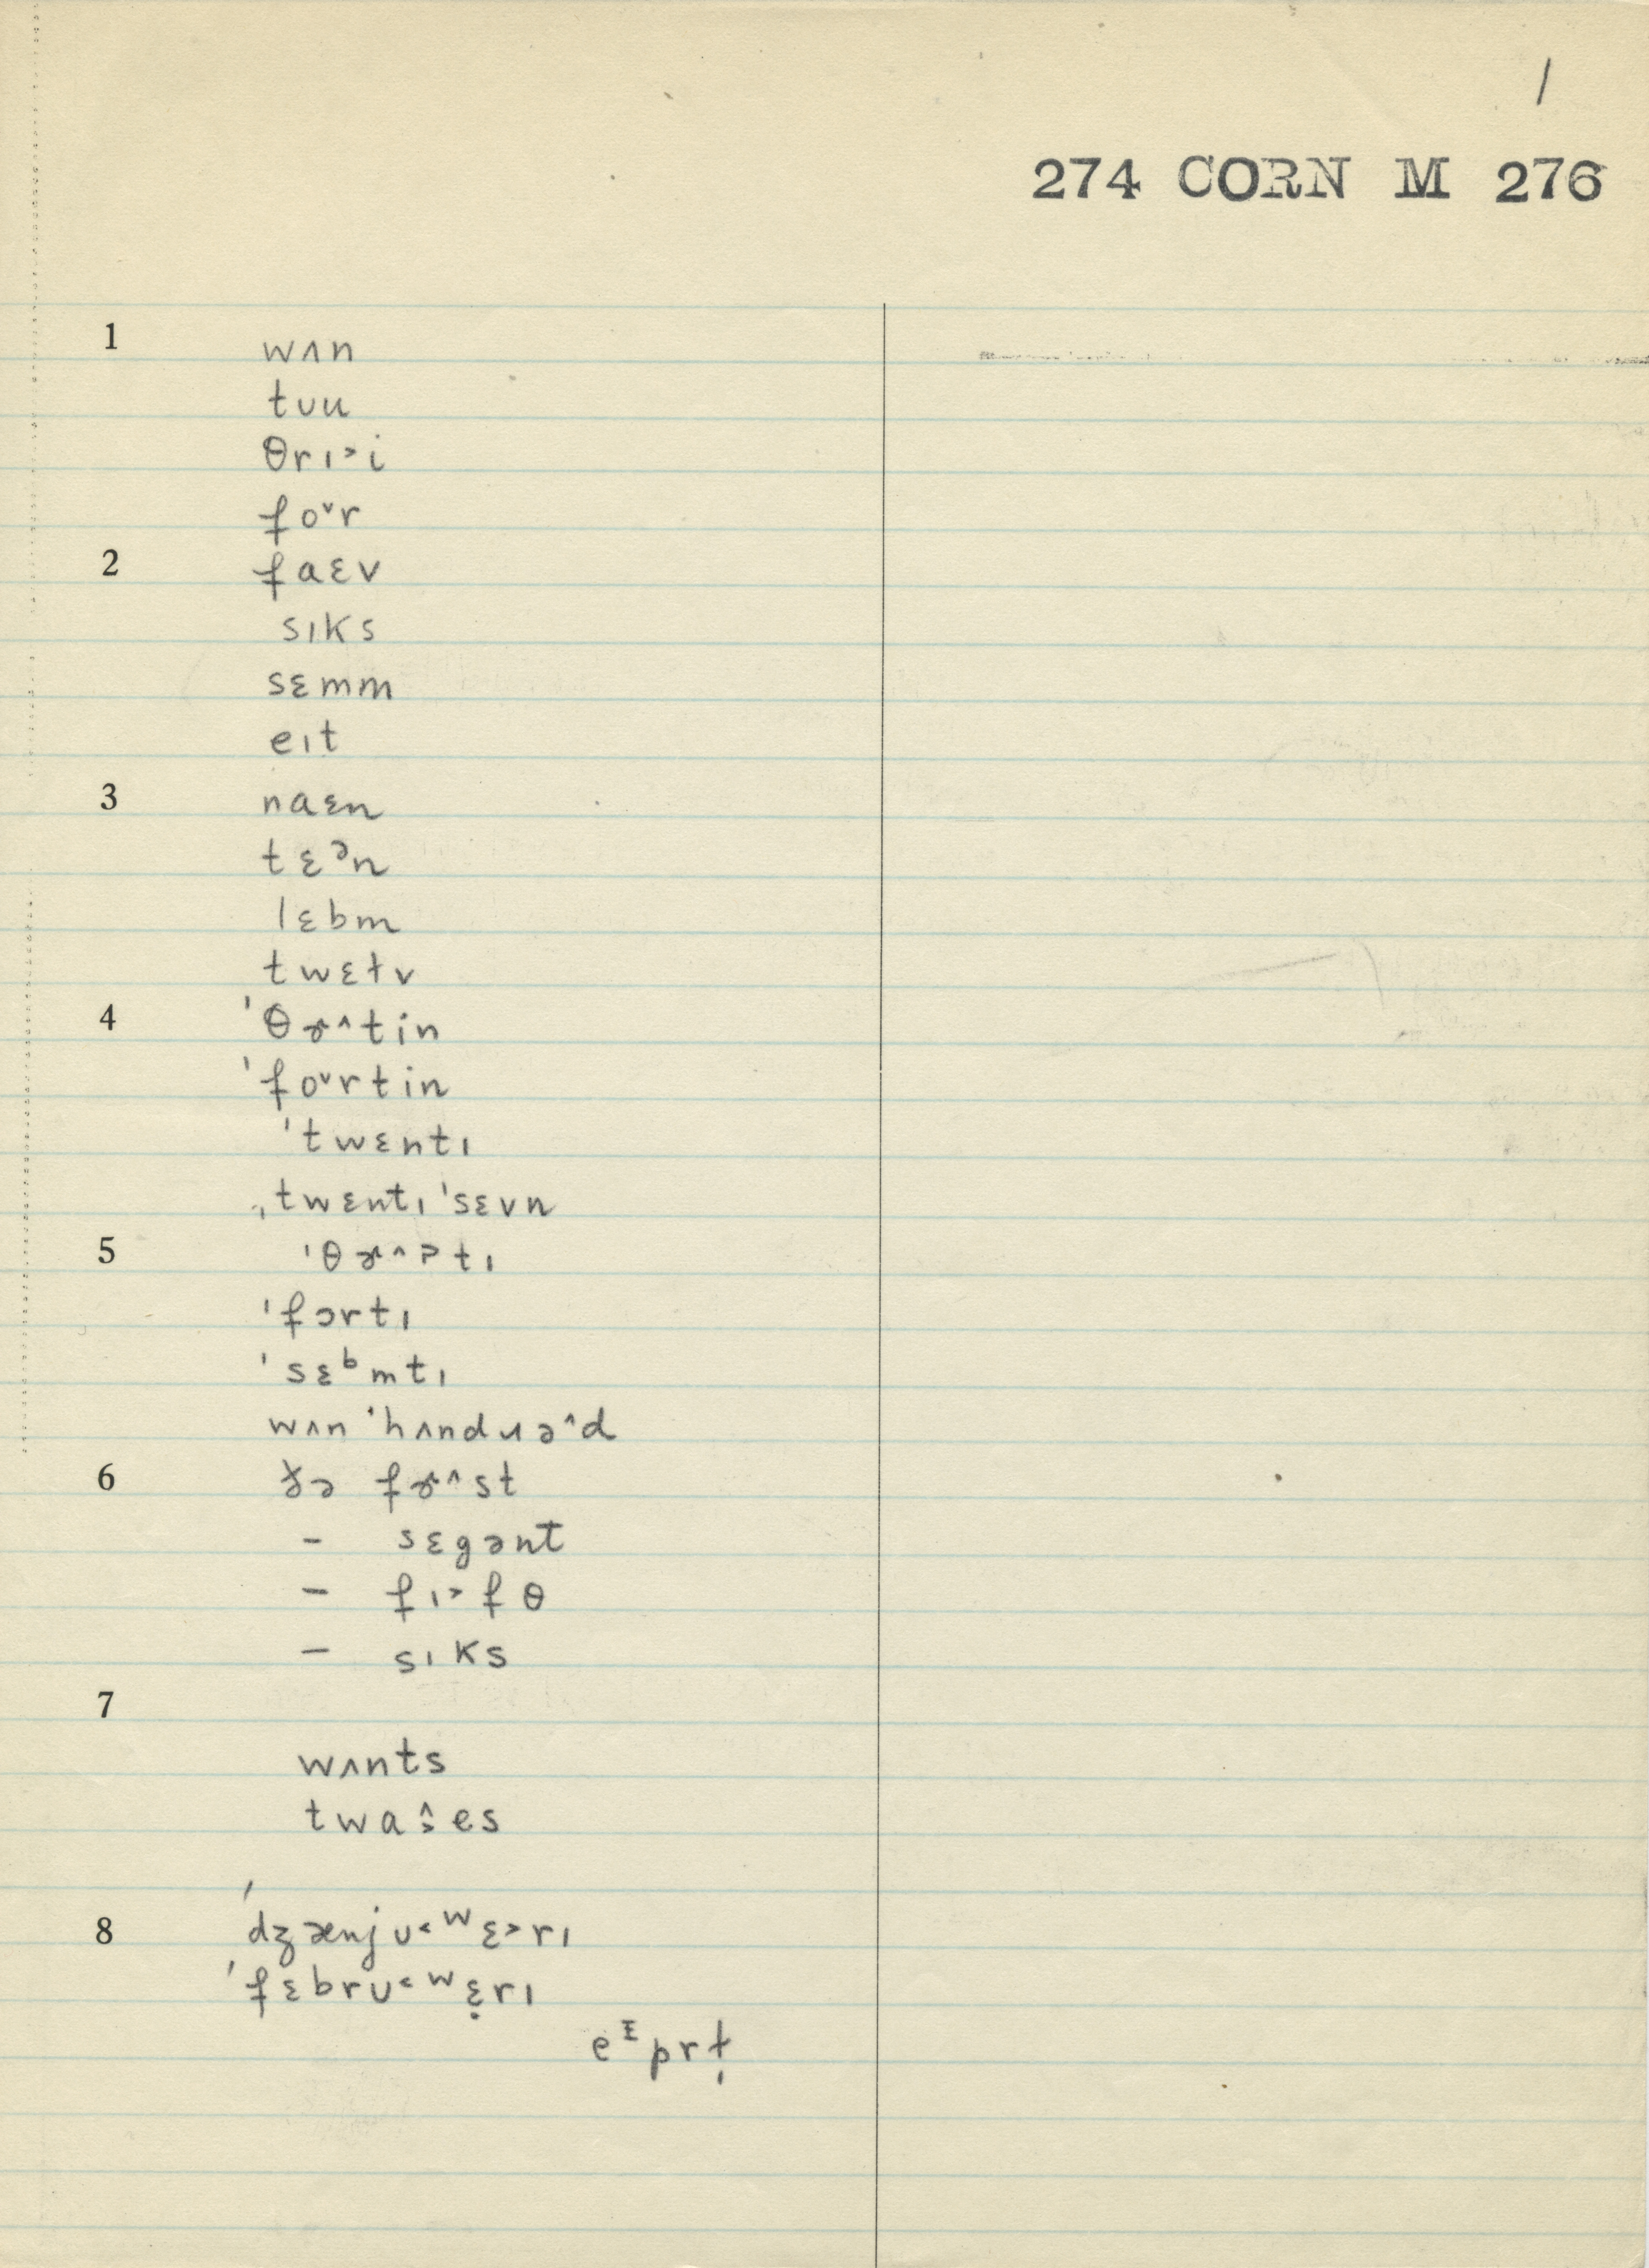 /
274 CORN M 276
1 wʌn
tʊu
θrɪ˃i
fo˅r
2 faɛv
sɪks
sɛmm
eɪt
3 naɛn
tɛᵊn
lɛbm
twɛɫv
4 ˈθɚ˄tin
ˈfo˅rtin
ˈtwɛntɪ
ˌtwɛntɪ ˈsɛvn
5 ˈθɚ˄ tɪ
ˈfɔrtɪ
ˈsɛᵇmtɪ
wʌn ˈhʌndɹə˄d
6 ðə fɚ˄st
– sɛgənt
– fɪ˃fθ
– sɪks
7
wʌnts
twa:̂es
8 ˈdʒænjʊ˂ʷɛ˃rɪ
ˈfɛbrʊ˂ʷɛ̣rɪ
eᶦprɫ̩